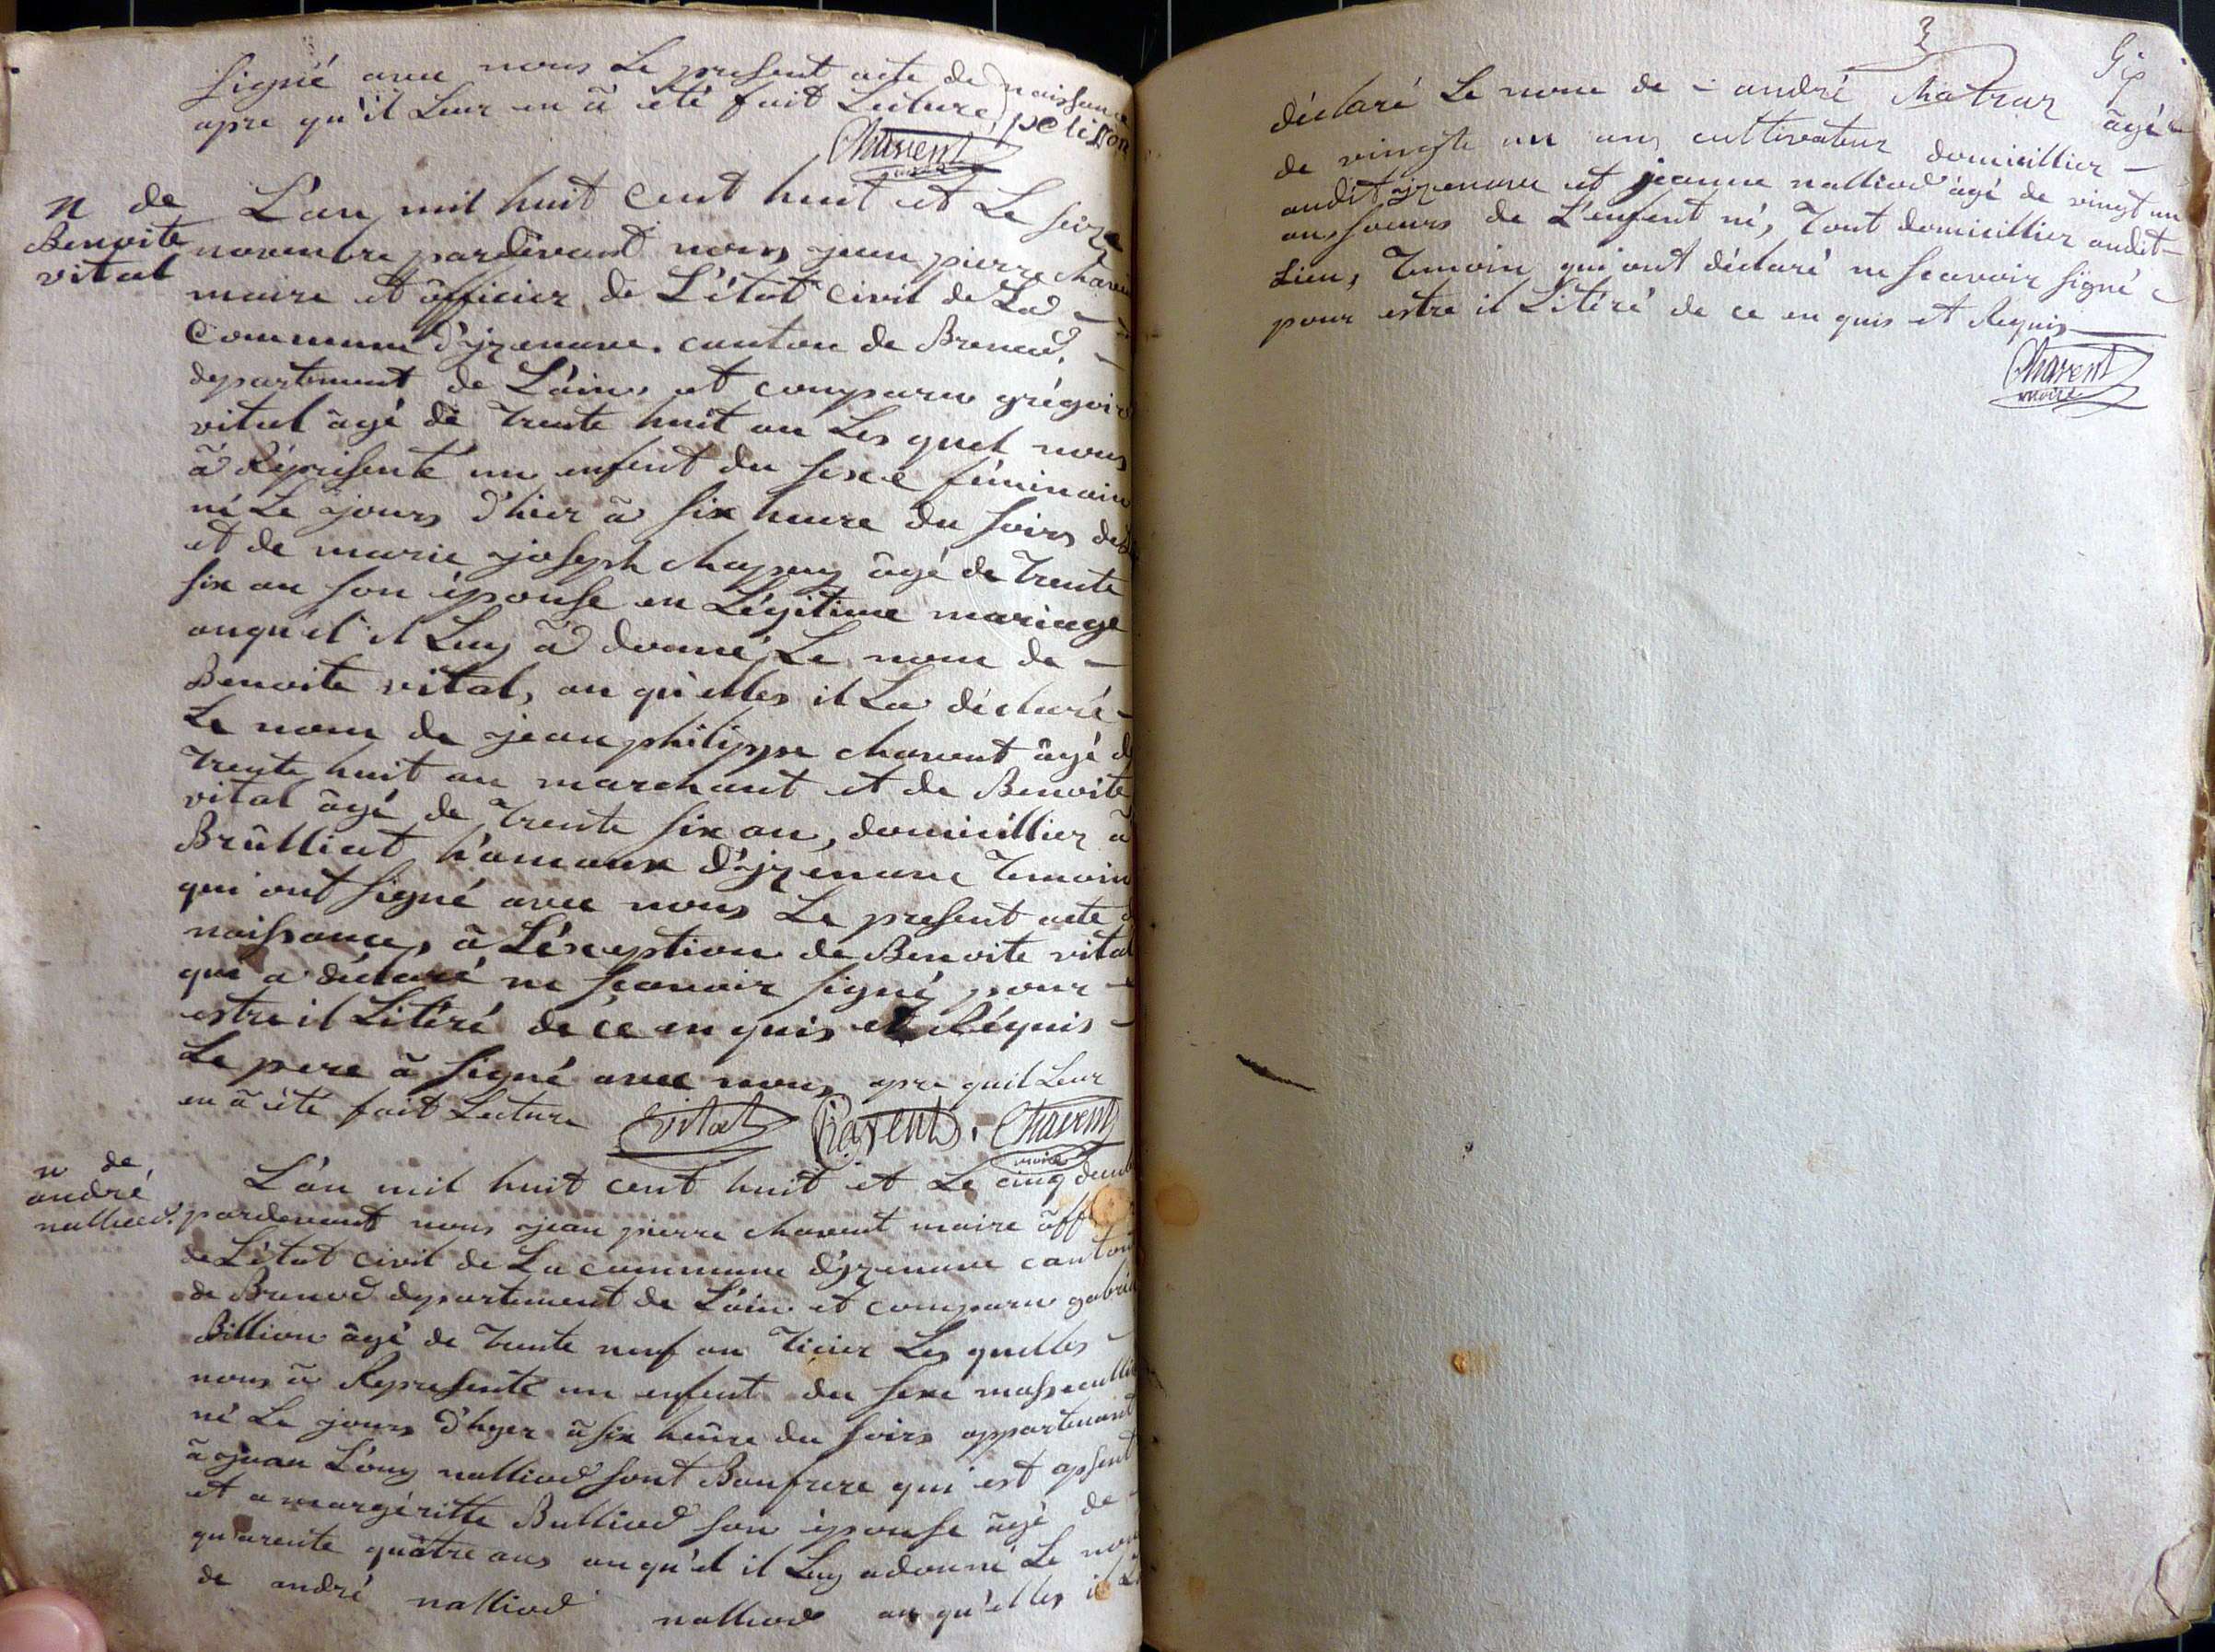 signé avec nous Le present acte de naissance
apre qu'il Leur en à été fait Lecture, pelisson
Chavent
maire
n de
Benoite
vital
L'an mil huit cent huit et Le seize
novembre pardevant nous jean pierre Chavent
maire et officier de L'état civil de La
Commune d'izenave. canton de Brenod.
departement de L'ain, et comparu grégoire
vital àgé de trente huit an Les quel nous
à Réprisenté un enfent du sexe féminain
né Le jours d'hier à six heure du soirs de
et de marie joseph Chappuy àgé de trente
six an son épouse en Légitime mariage
auqu'el il Luy à donné Le nom de
Benoite vital, au qu'elles il La déclaré
Le nom de jean philippe chavent âgé de
trente huit an marchant et de Benoite
vital àgé de trente six an, domicillier à
Brûlliat h'amaux d'izenave temoin
qui ont signé avec nous Le present acte de
naissance, à L'éxception de Benoite vital
qui a déclaré ne scavoir signé pour
estre il Litéré de ce en quis et Réquis
Le pere à signé avec nous apre quil Leur
en à été fait Lecture vital Chavent. Chavent
maire
n de
andré
nalliod.
L'an mil huit cent huit et Le cinq
pardevant nous jean pierre chavent maire
de L'état civil de La commune d'izenave canton
de Brenod departement de L'ain et comparu gabriel
Billion àgé de trente neuf an Les quelles
nous à Represénté un enfent du sexe
né Le jours d'hyer à six heûre du soirs appartenant
à jean Louy nalliod sont Baufrere qui est apsent
et a margéritte Bulliod son épouse àgé de
qu'arente quàtre ans au qu'el il Luy a donné Le nom
de andré nalliod nalliod au qu'elles il La
3
déclaré Le nom de andré Matraz àgé
de vingte un ans cultivateur domicillier
audit izenave et jeanne nalliod àgé de vingt un
ans soeurs de L'enfent né, Tout domicillier audit
Lieu, Temoin qui ont déclaré ne scavoir signé
pour estre il Litéré de ce en quis et Requis
Chavent
maire